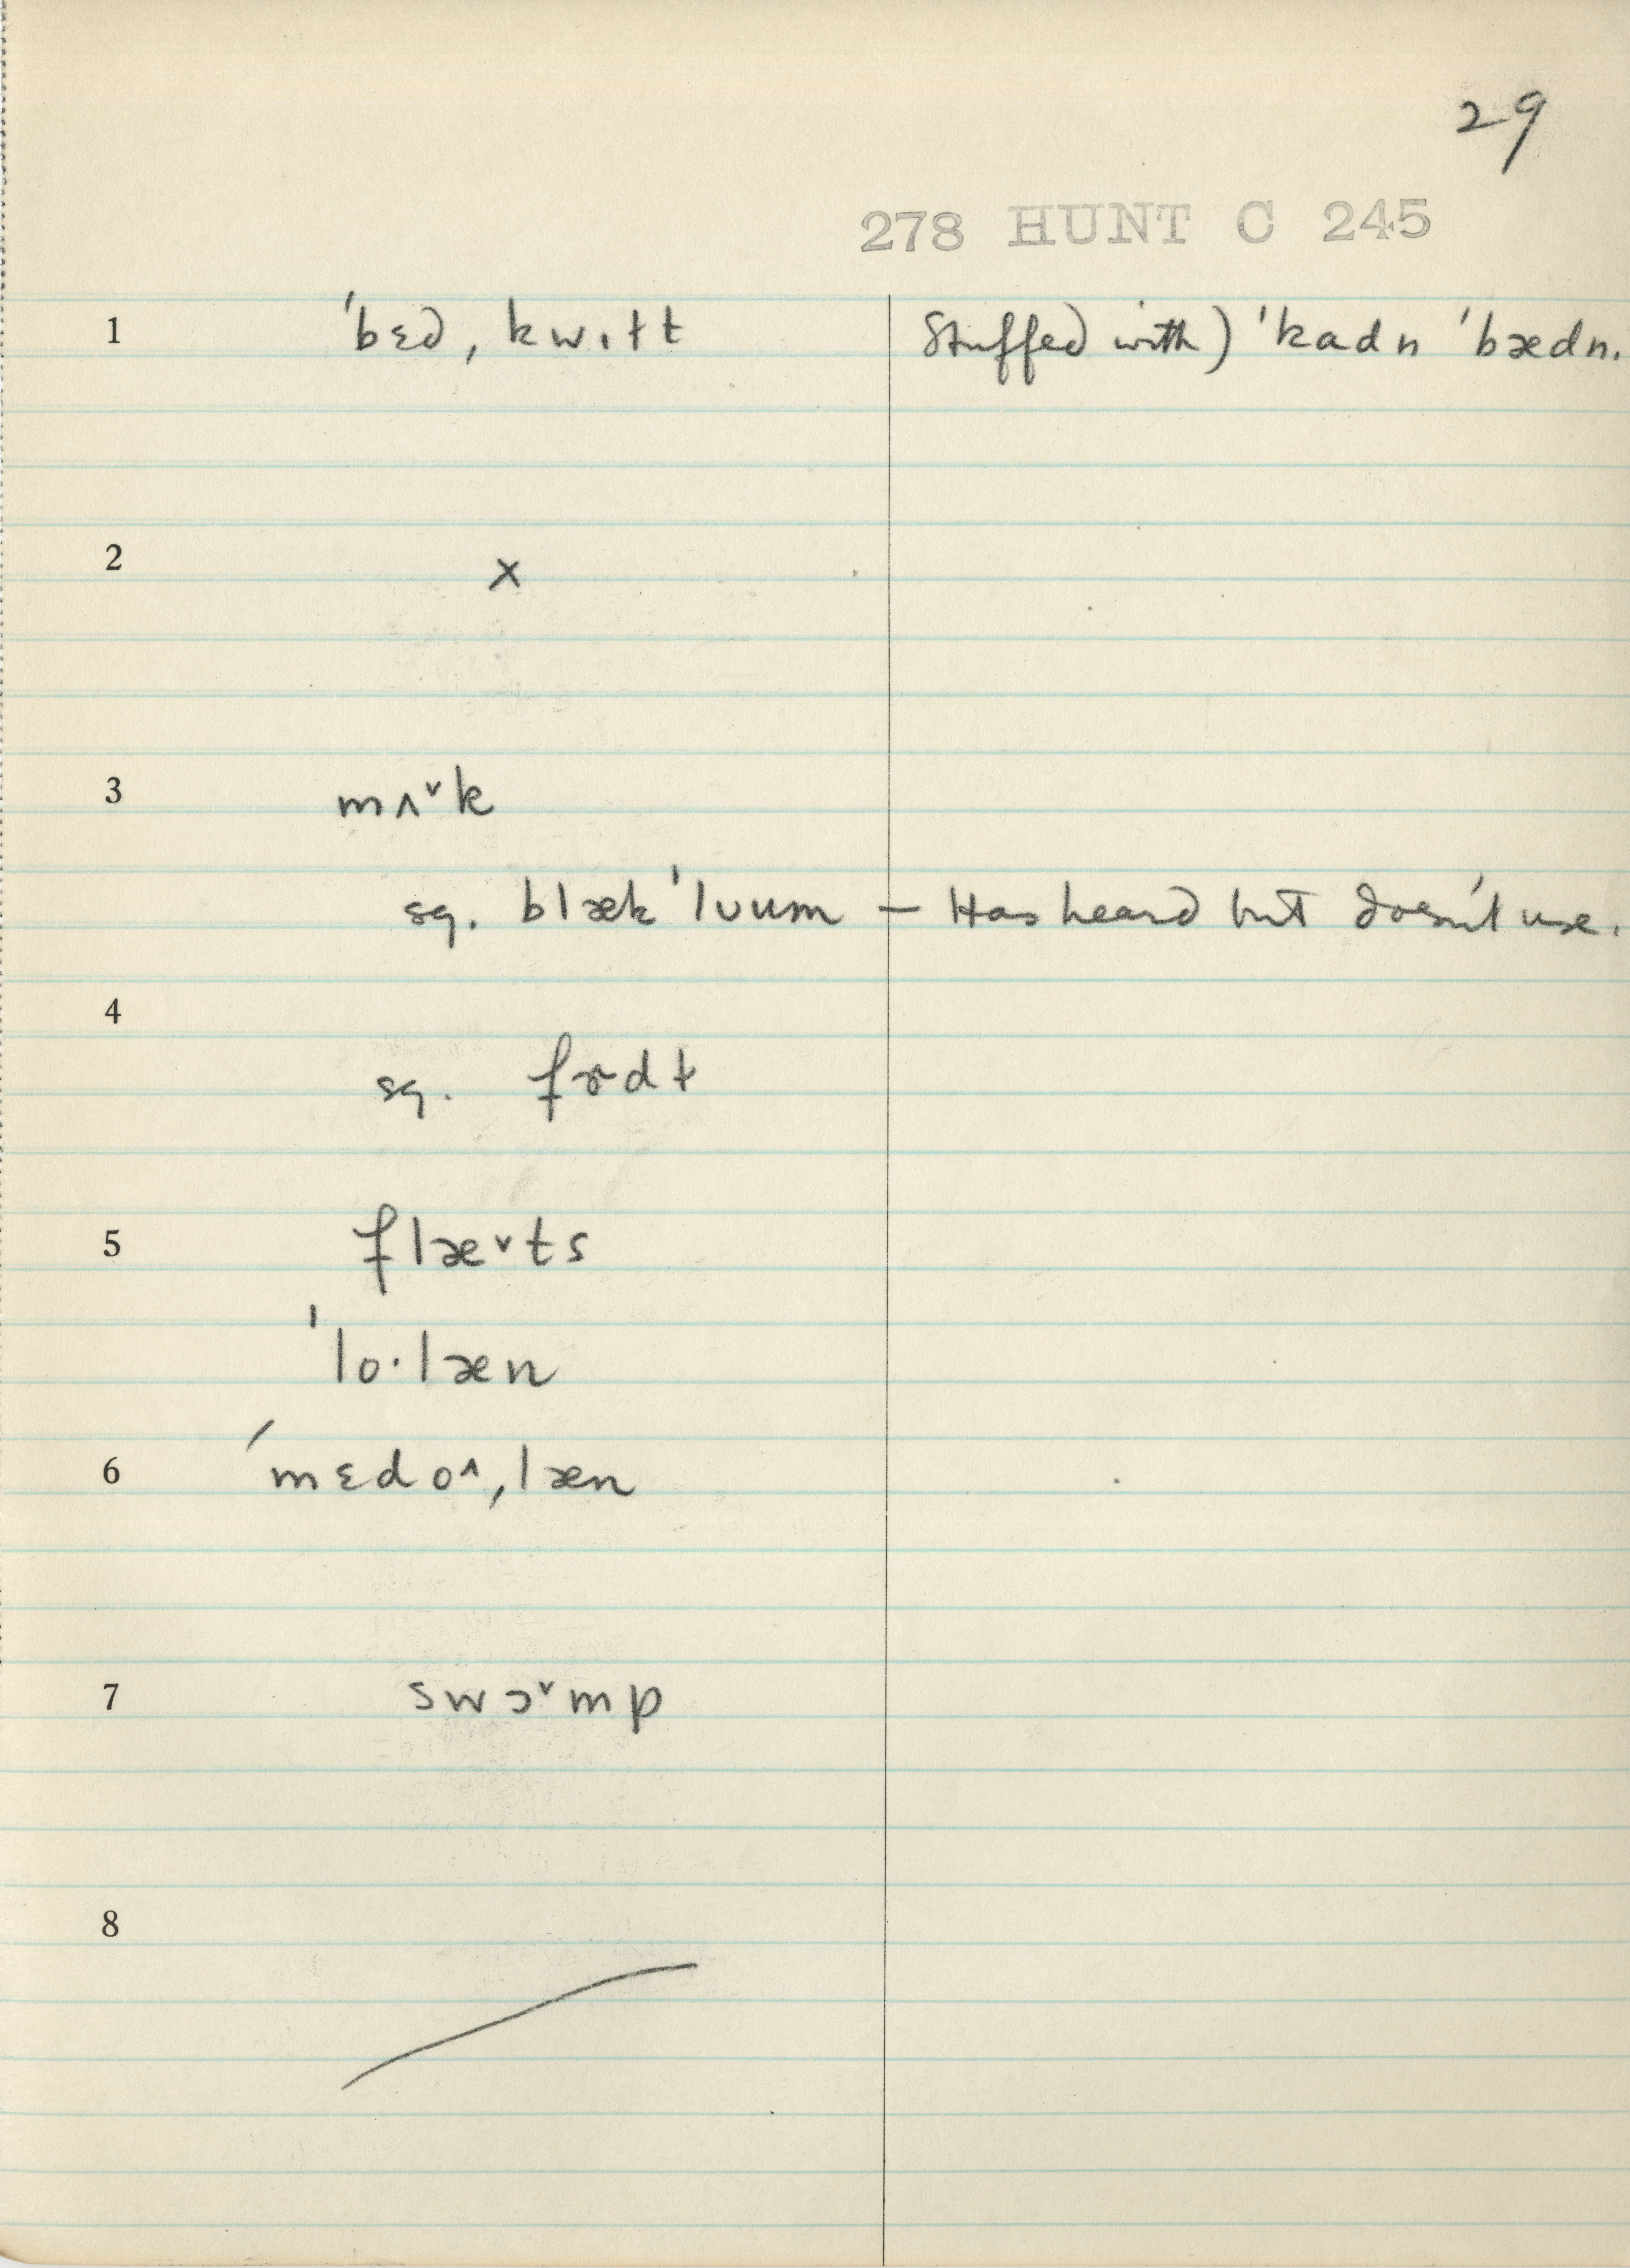 29
278 HUNT C 245
1 ˈbɛd ˌkwɪɫt Stuffed with) ˈkadn ˈbædn.
2 x
3 mʌ˅k
sg. blækˈlʊum — Has heard but doesn't use.
4
sg. fɚdɫ
5 flæ˅ts
ˈlo·læn
6 ˈmɛdo^ˌlæn
7 swɔ˅mp
8